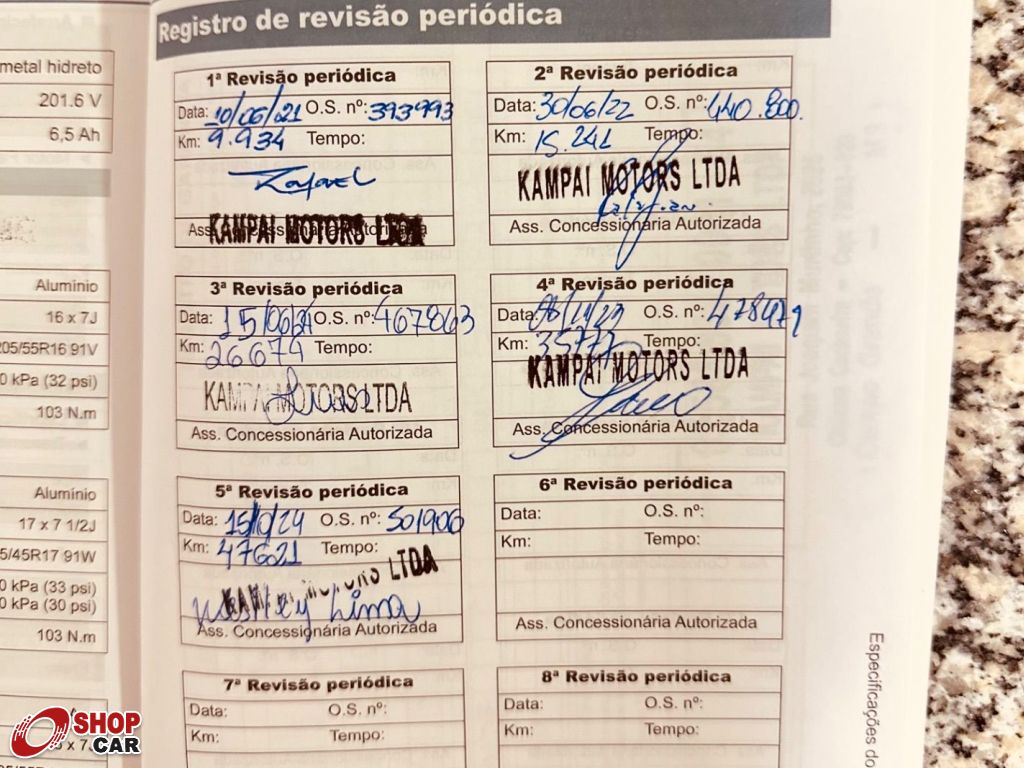 Registro de revisão periódica
metal hidreto
201.6 V
6,5 Ah
Alumínio
16 x 7J
205/55R16 91V
0 kPa (32 psi)
103 N.m
Alumínio
17 x 7 1/2J
5/45R17 91W
0 kPa (33 psi)
0 kPa (30 psi)
103 N.m
1ª Revisão periódica
Data: 10/06/21 O.S. nº: 393993
Km: 9.934 Tempo:
Rafael
KAMPAI MOTORS LTDA
Ass. Concessionária Autorizada
2ª Revisão periódica
Data: 30/06/22 O.S. nº: 440.800.
Km: 15.241 Tempo:
KAMPAI MOTORS LTDA
Ass. Concessionária Autorizada
3ª Revisão periódica
Data: 15/06/ O.S. nº: 467863
Km: 26674 Tempo:
KAMPAI MOTORS LTDA
Ass. Concessionária Autorizada
4ª Revisão periódica
Data: O.S. nº:
Km: 35777 Tempo:
KAMPAI MOTORS LTDA
Ass. Concessionária Autorizada
5ª Revisão periódica
Data: 15/10/24 O.S. nº: 501906
Km: 47621 Tempo:
KAMPAI MOTORS LTDA
Lima
Ass. Concessionária Autorizada
6ª Revisão periódica
Data: O.S. nº:
Km: Tempo:
Ass. Concessionária Autorizada
7ª Revisão periódica
Data: O.S. nº:
Km: Tempo:
8ª Revisão periódica
Data: O.S. nº:
Km: Tempo:
Especificações do
SHOP
CAR